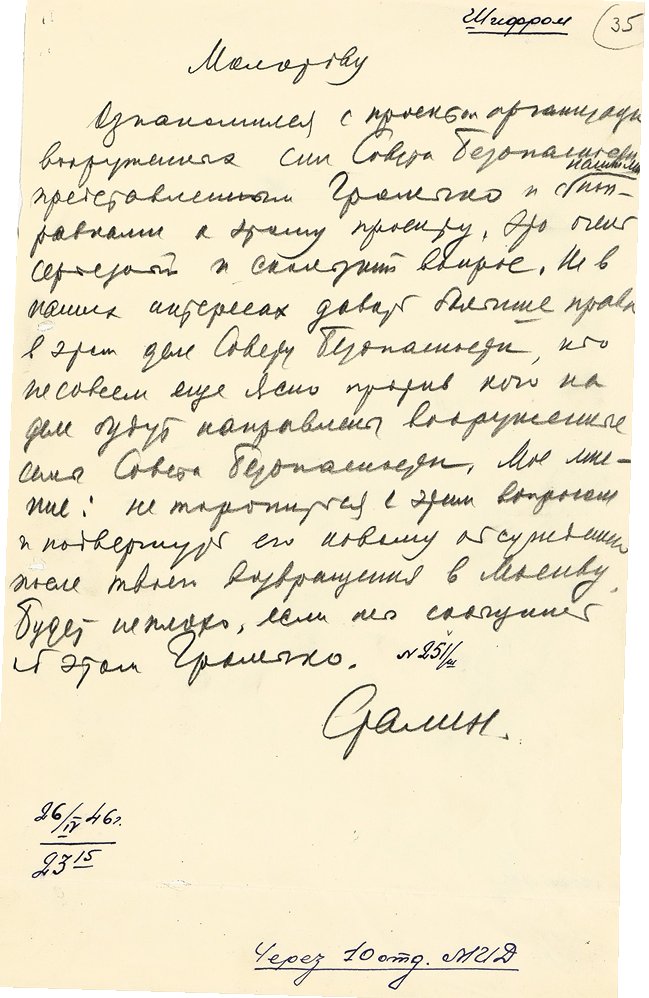 Шифром
35
Молотову
Ознакомился с проектом организации
вооруженных сил Совета Безопасности,
нашими
представленным Громыко и с поп-
равками к этому проекту. Это очень
серьезный и скользкий вопрос. Не в
наших интересах давать большие права
в этом деле Совету Безопасности, ибо
не совсем еще ясно против кого на
деле будут направлены вооруженные
силы Совета Безопасности. Мое мне-
ние: не торопиться с этим вопросом
и подвергнуть его новому обсуждению
после твоего возвращения в Москву.
Будет неплохо, если ты сообщишь
об этом Громыко. №
Сталин.
26/IV 46г.
23 15
Через 10 отд. МИД